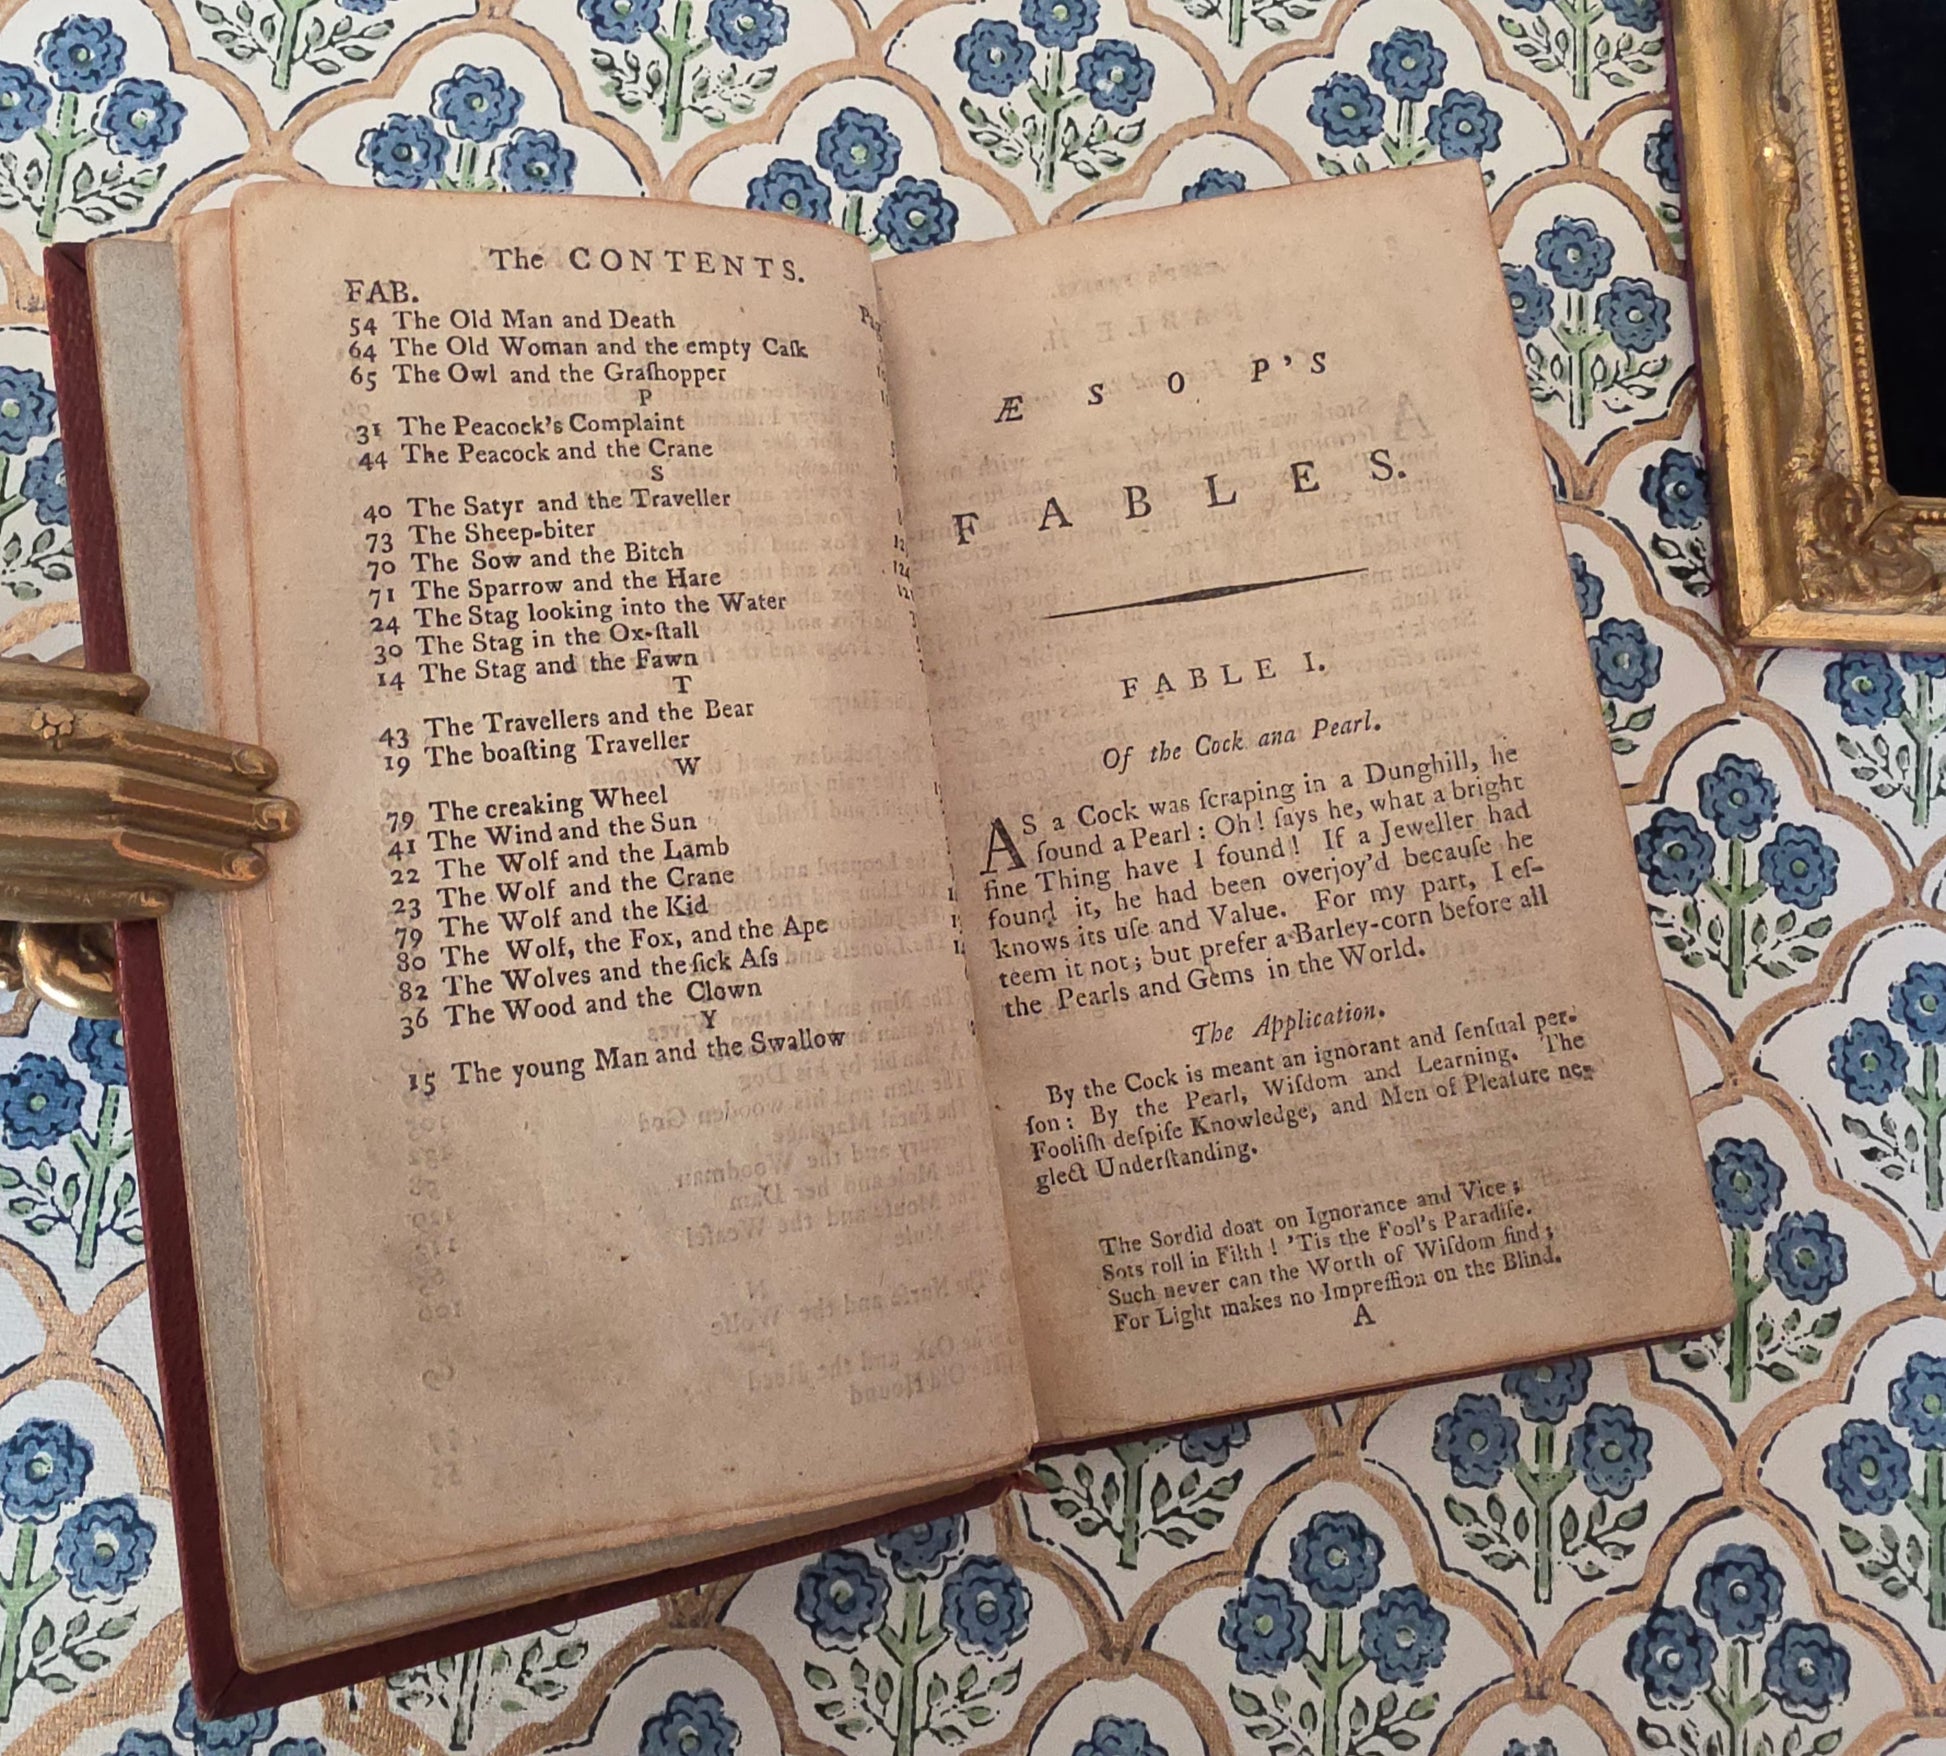 The CONTENTS.
FAB.
54 The Old Man and Death
64 The Old Woman and the empty Caſk
65 The Owl and the Graſhopper
P
31 The Peacock's Complaint
44 The Peacock and the Crane
S
40 The Satyr and the Traveller
73 The Sheep-biter
70 The Sow and the Bitch
71 The Sparrow and the Hare
24 The Stag looking into the Water
30 The Stag in the Ox-ſtall
14 The Stag and the Fawn
T
43 The Travellers and the Bear
19 The boaſting Traveller
W
79 The creaking Wheel
41 The Wind and the Sun
22 The Wolf and the Lamb
23 The Wolf and the Crane
79 The Wolf and the Kid
80 The Wolf, the Fox, and the Ape
82 The Wolves and the ſick Aſs
36 The Wood and the Clown
Y
15 The young Man and the Swallow
ÆSOP'S
FABLES.
FABLE I.
Of the Cock and Pearl.
AS a Cock was ſcraping in a Dunghill, he
found a Pearl: Oh! ſays he, what a bright
fine Thing have I found! If a Jeweller had
found it, he had been overjoy'd becauſe he
knows its uſe and Value. For my part, I eſ-
teem it not; but prefer a Barley-corn before all
the Pearls and Gems in the World.
The Application.
By the Cock is meant an ignorant and ſenſual per-
ſon: By the Pearl, Wiſdom and Learning. The
Fooliſh deſpiſe Knowledge, and Men of Pleaſure ne-
glect Underſtanding.
The Sordid doat on Ignorance and Vice;
Sots roll in Filth! 'Tis the Fool's Paradiſe.
Such never can the Worth of Wiſdom find;
For Light makes no Impreſſion on the Blind.
A